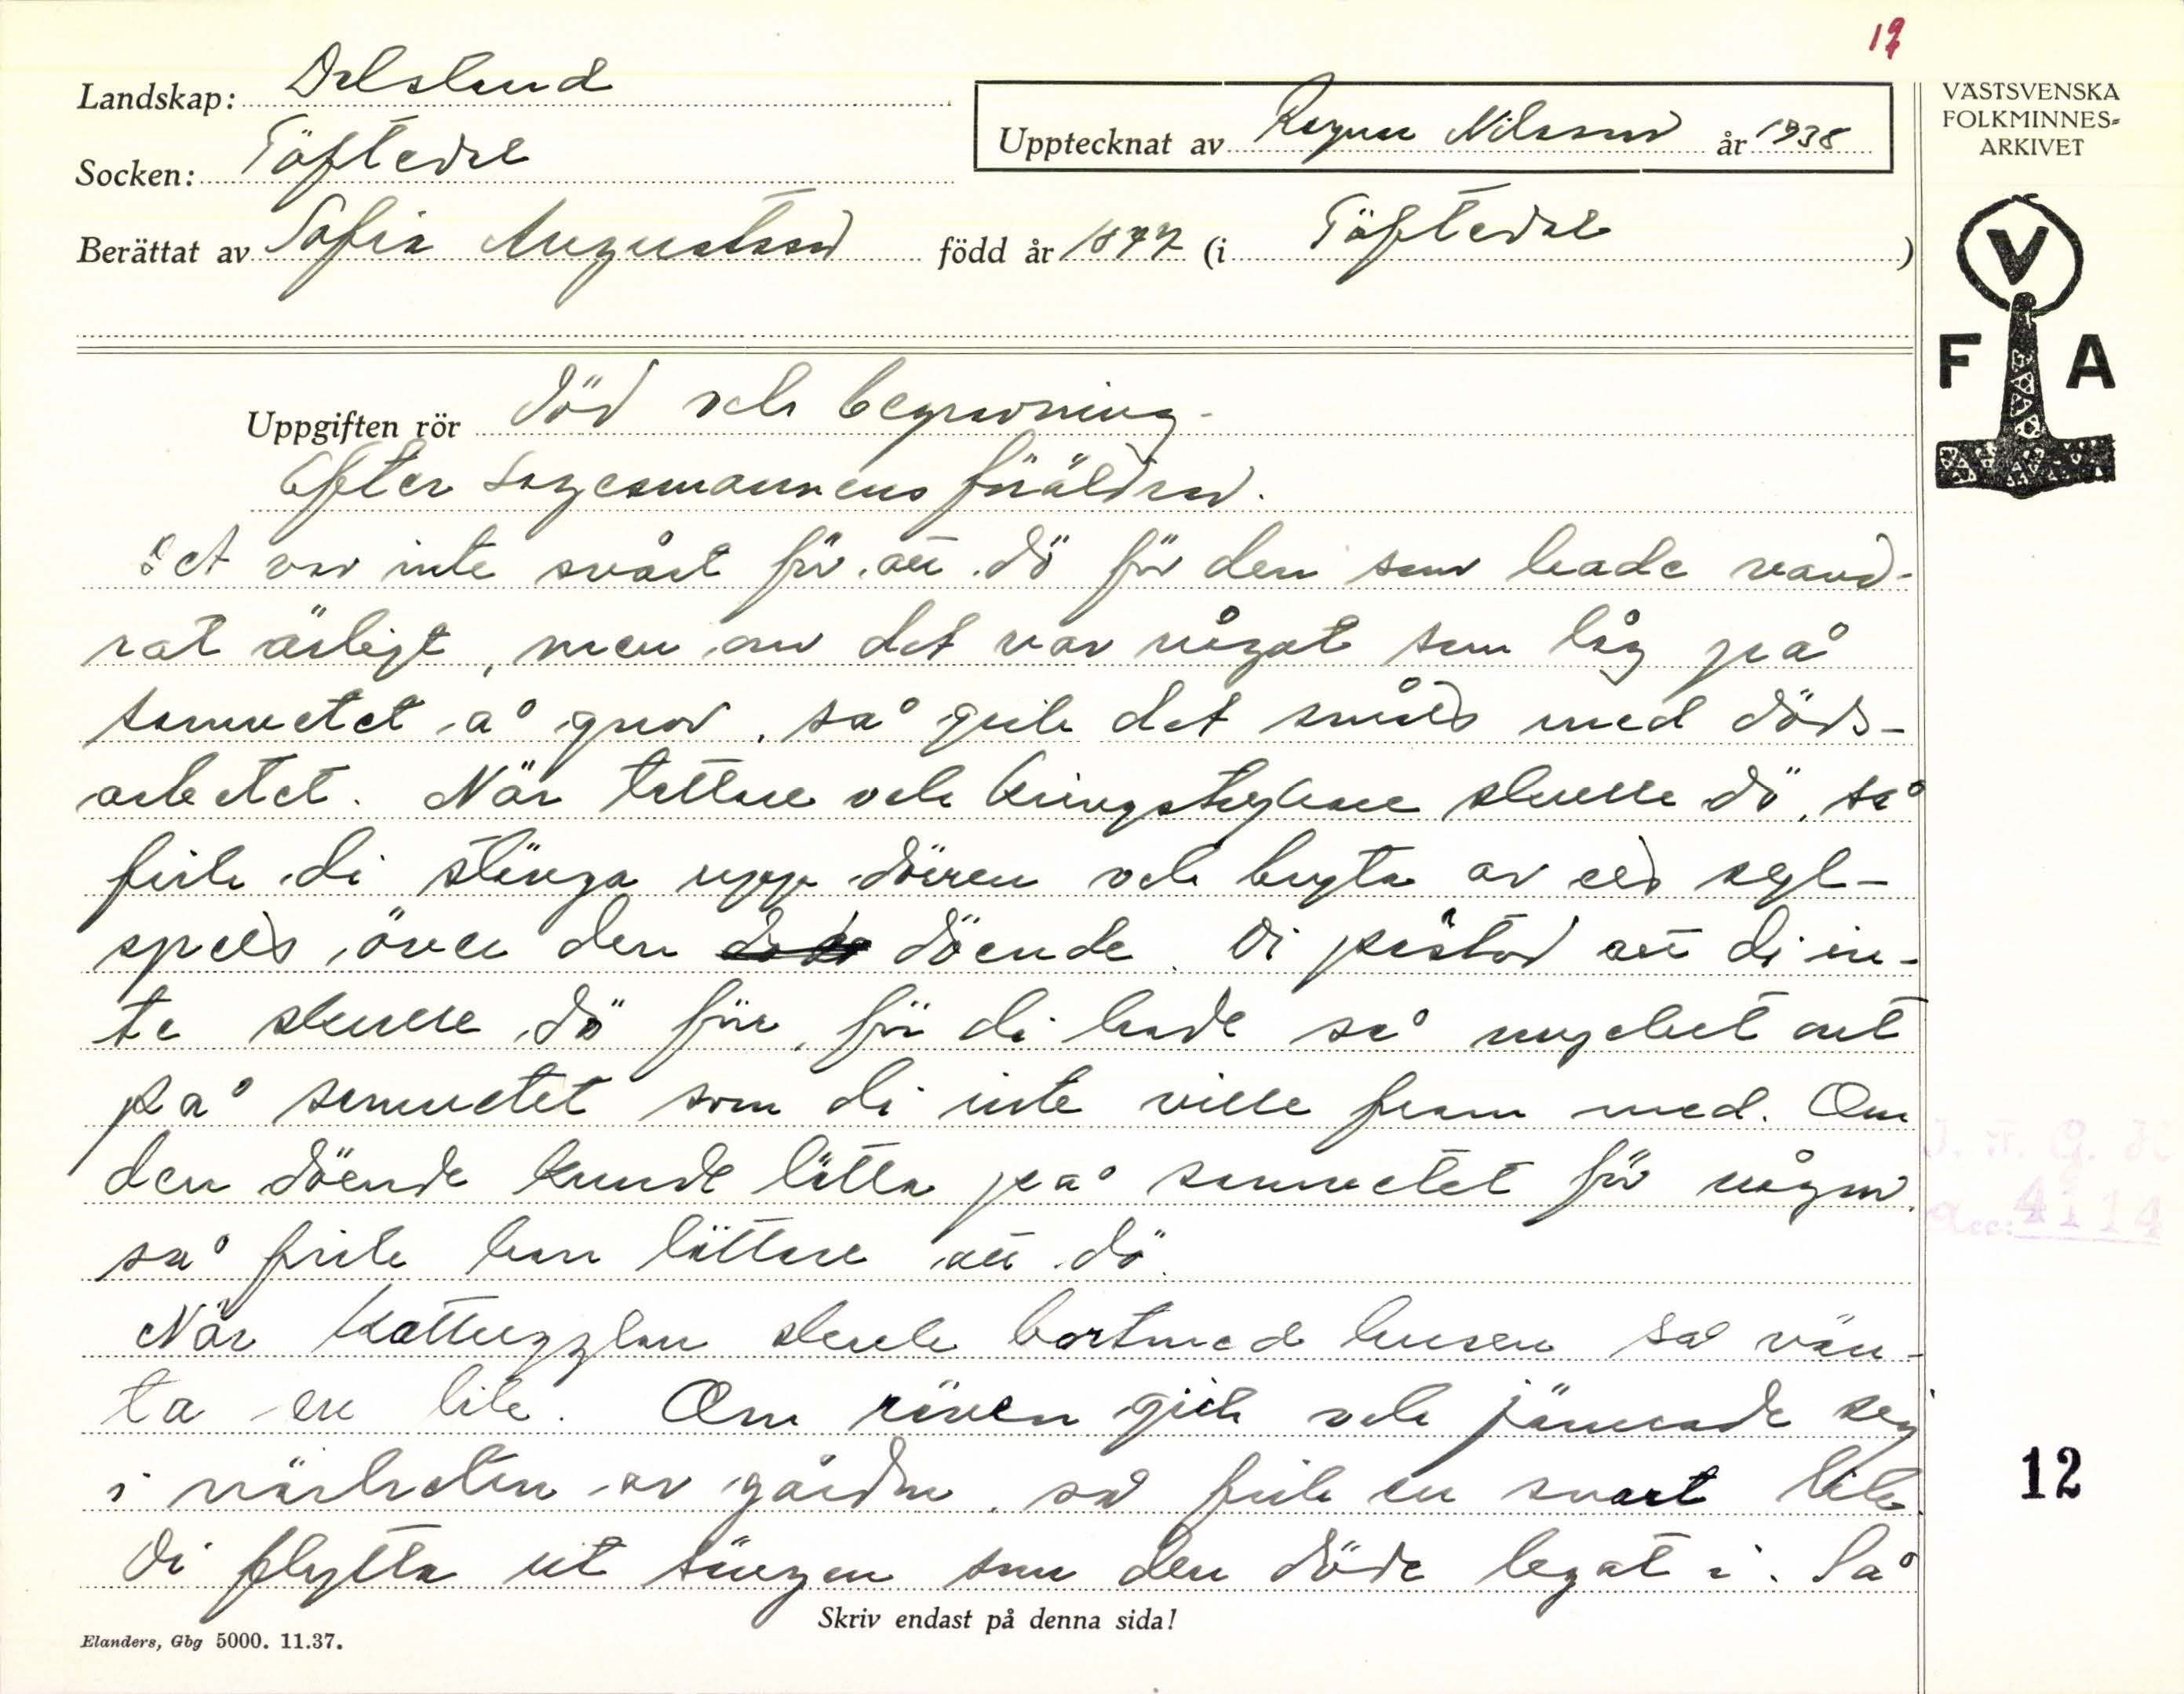 12
Landskap: Dalsland
Socken: Töftedal
Upptecknat av Ragnar Nilsson år 1938
Berättat av Sofia Augustsson född år 1877 (i Töftedal)
VÄSTSVENSKA
FOLKMINNES-
ARKIVET
V
F A
Uppgiften rör Död och begravning.
Efter sagesmannens föräldrar.
Det var inte svårt för att dö för den som hade vand-
rat ärligt, men om det var något som låg på
samvetet å gnov, så gick det smått med döds-
arbetet. När tattare och kringstrykare skulle dö, så
fick di slänga upp dörren och bryta av ett sql-
spett över den döende. Di påstod att di in-
te skulle dö för, för di hade så mycket ont
på samvetet som di inte ville fram med. Om
den döende kunde lätta på samvetet för någon,
så fick han lättare att dö.
När kattugglan skrek bortmed husen så vän-
ta en lik. Om räven gick och jämrade seg
i närheten av gården, så fick en snart lik.
Di flytta ut sängen som den döde legat i. Så
J. F. G. H
Acc: 4114
12
Skriv endast på denna sida!
Elanders, Gbg 5000. 11.37.